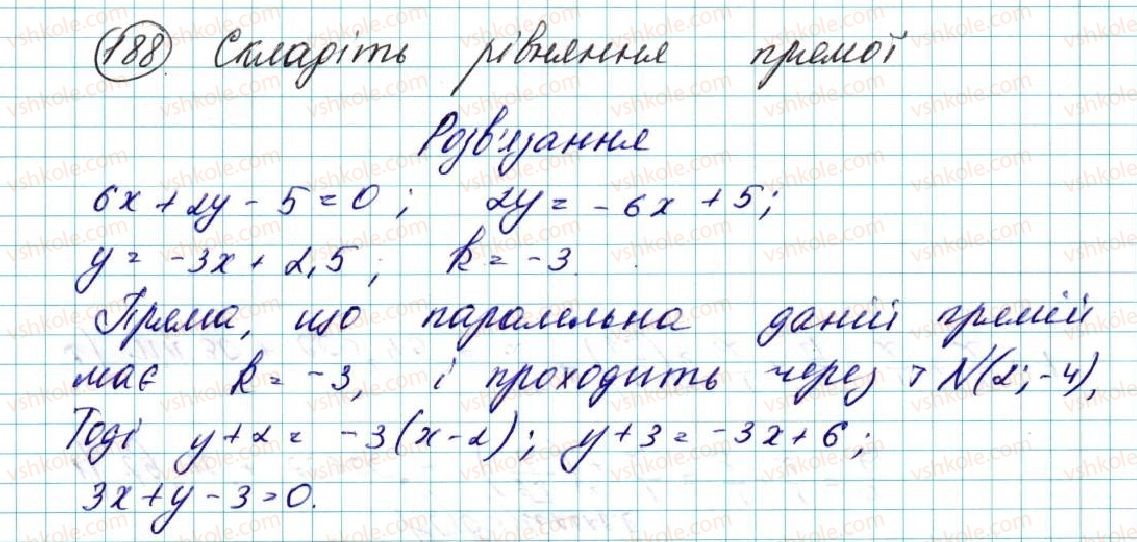 188. Складіть рівняння прямої
Розв'язання
6x + 2y - 5 = 0; 2y = -6x + 5;
y = -3x + 2,5; k = -3.
Пряма, що паралельна даній прямій
має k = -3, і проходить через т N(2; -4),
Тоді y + 2 = -3(x - 2); y + 3 = -3x + 6;
3x + y - 3 = 0.